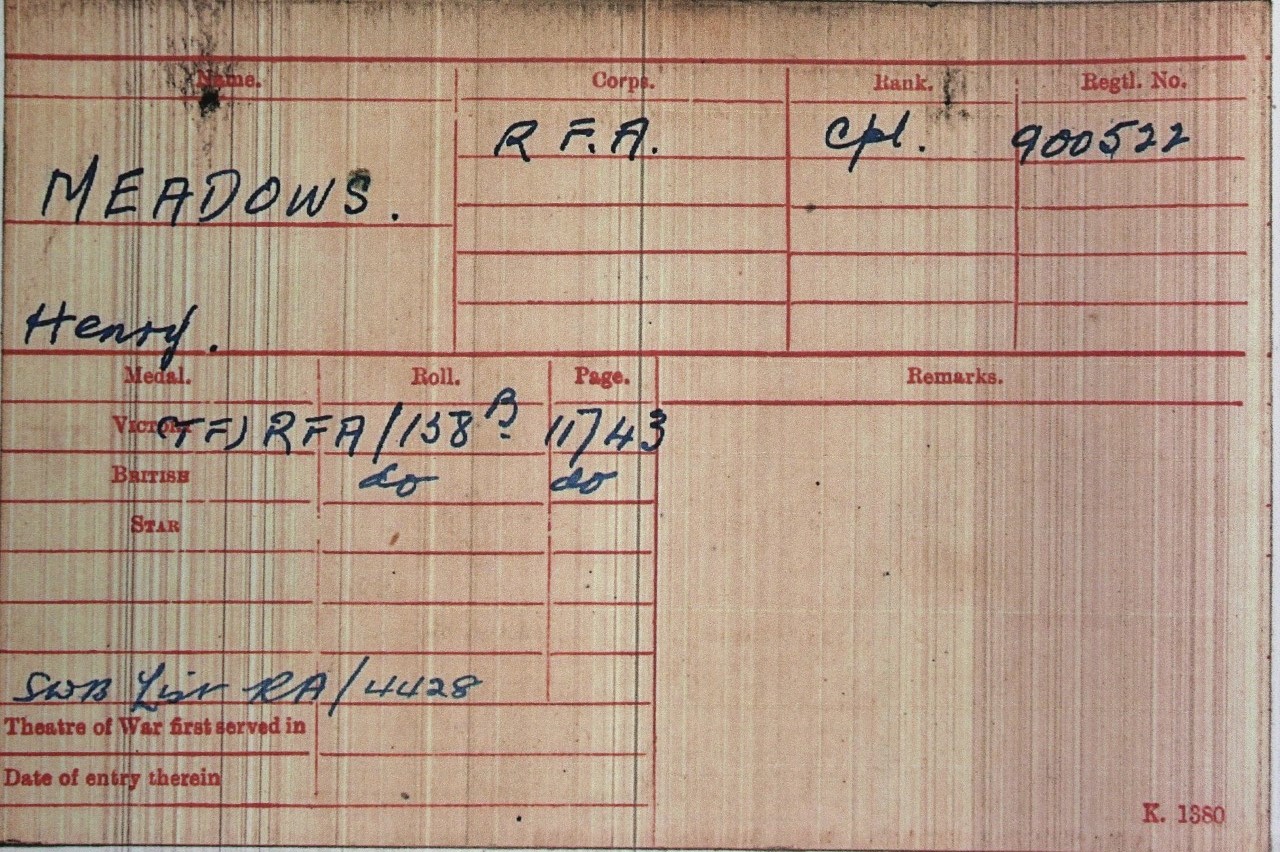 Name. Corps. Rank. Regtl. No.
R.F.A. Cpl. 900522
MEADOWS.
Henry.
Medal. Roll. Page. Remarks.
VICTORY (TF) RFA/158 B 11743
BRITISH do do
STAR
SWB List RA/4428
Theatre of War first served in
Date of entry therein
K. 1380